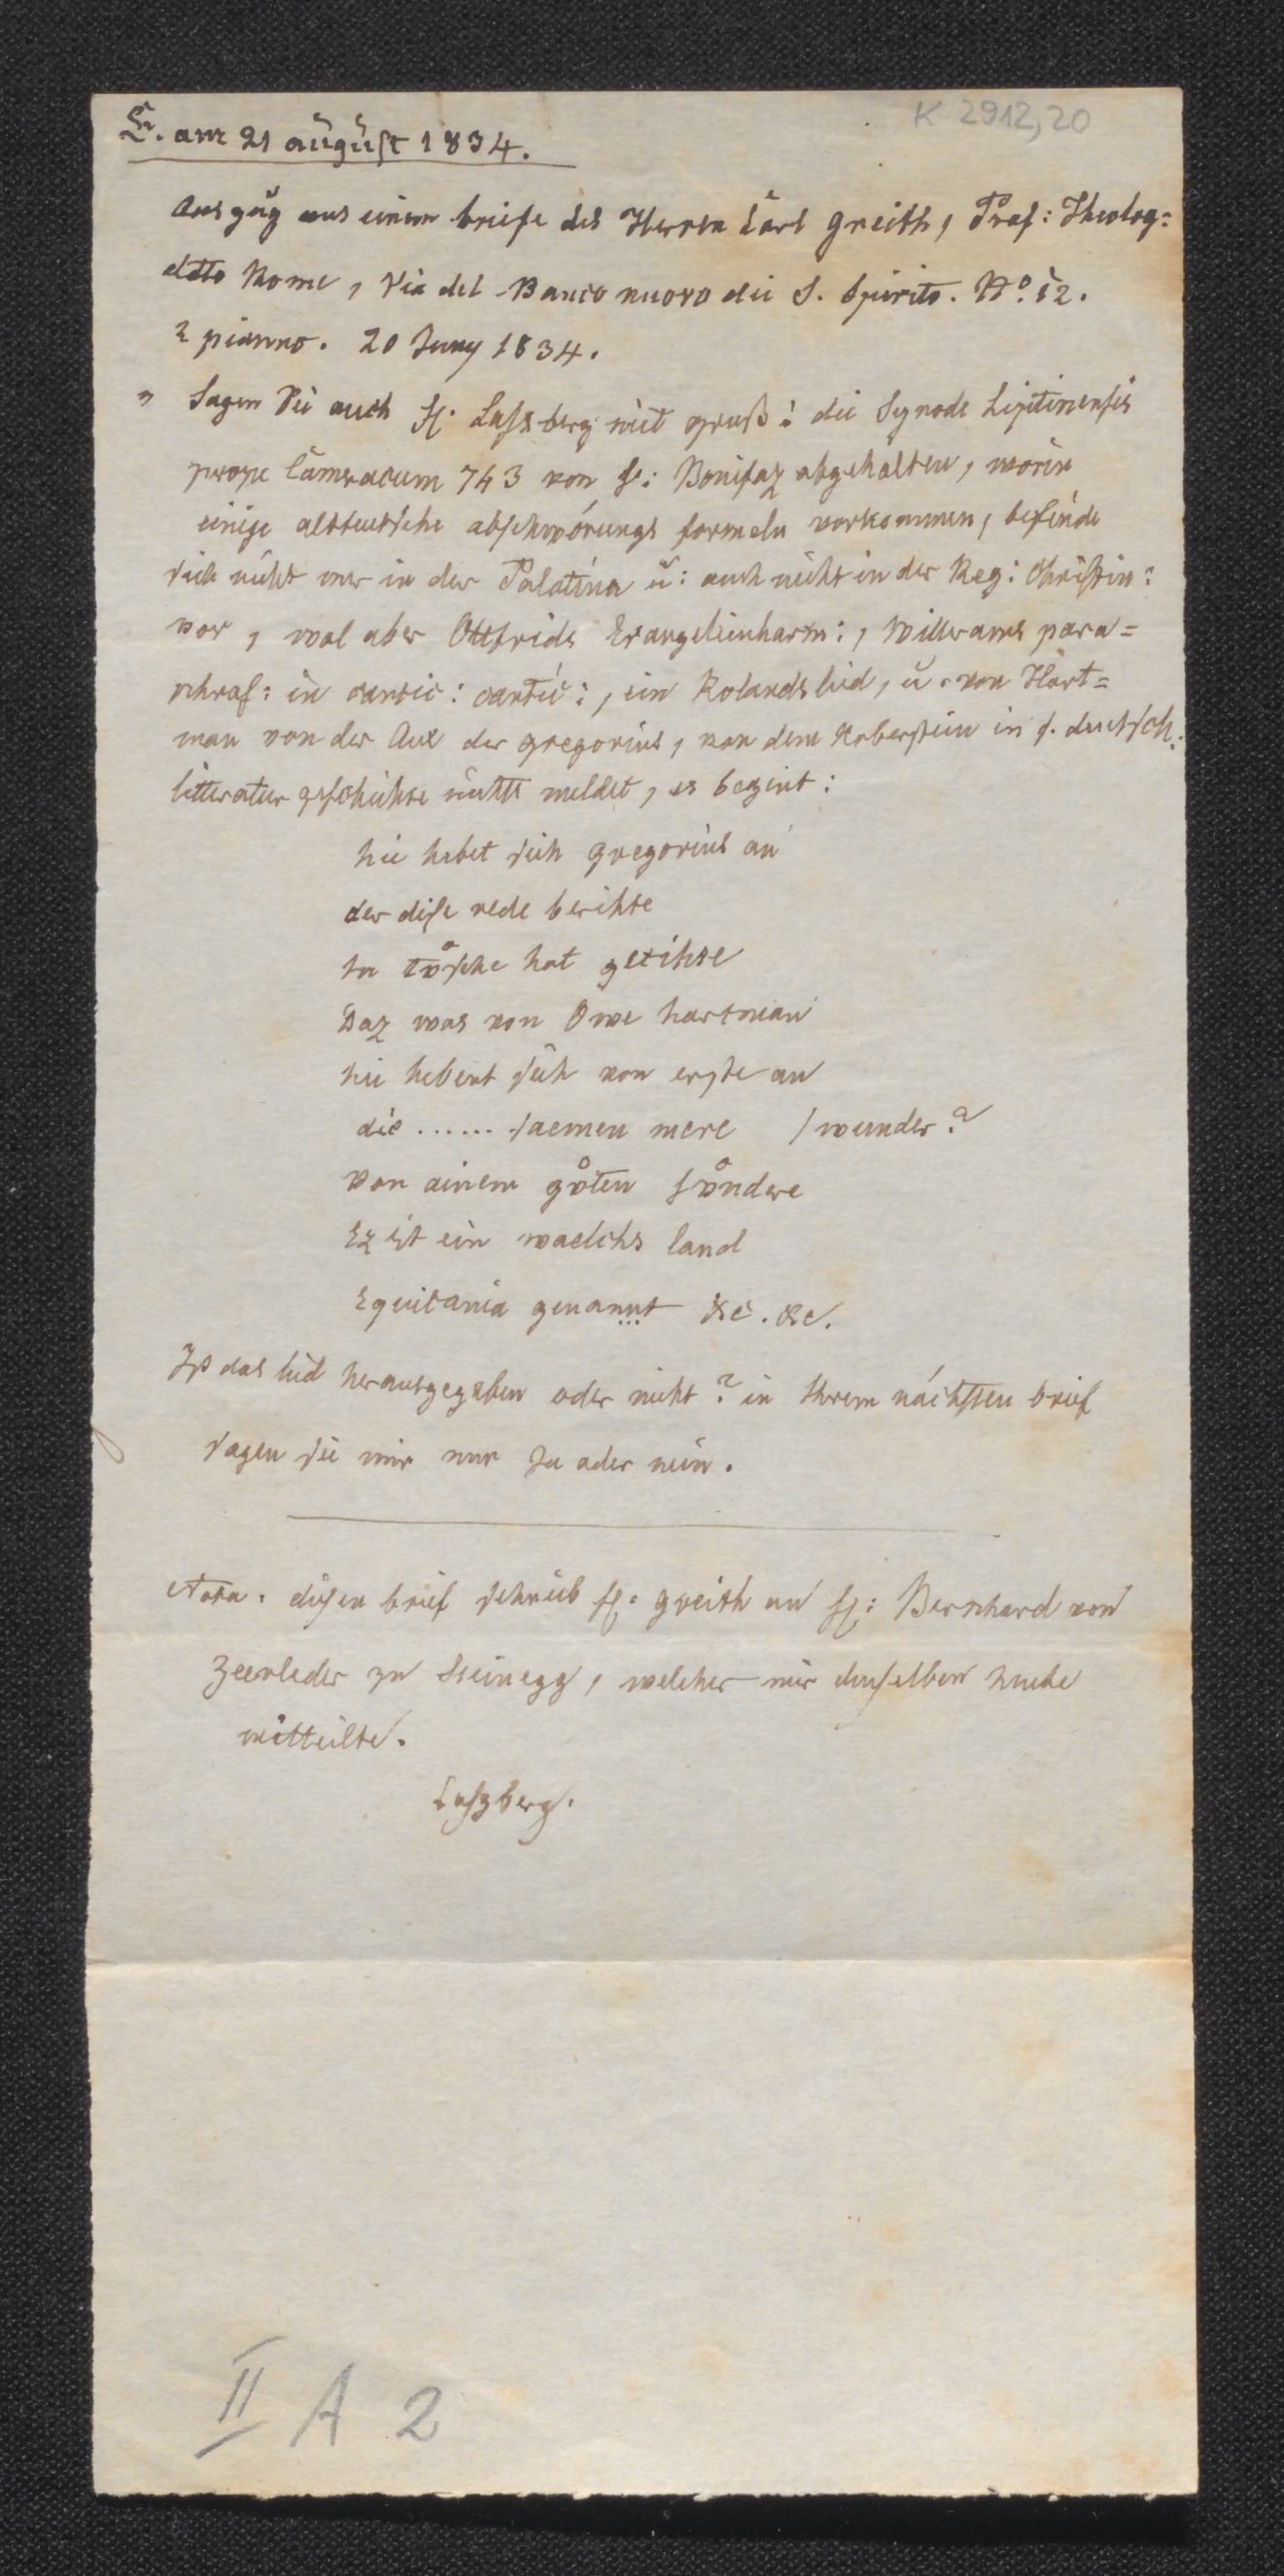 K 2912,20
E. am 21 august 1834.
Auszug aus einem briefe des Herren Carl Greith, Prof: Theolog:
detto Rome, Via del Banco nuovo dii S. Spirito. No. 12.
2 pianno. 20 Juny 1834.
" Sagen Sie auch H. Laſsberg mit gruß! die Synode Liptinensis
prope Cameracum 743 von h: Bonifaz abgehalten, worin
einige altteutsche abschwórungs formeln vorkommen, befinde
sich nicht mer in der Palatina u: auch nicht in der Reg: Christin:
vor, wol aber Ottfrids Evangelienharm:, Willerams para=
phras: in cantic: cantic:, ein Rolandslied, u. von Hart=
man von der Aue der gregorius, von dem Koberstein in s. deutsch.
litteratur geschichte nichts meldet, es begint:
hie hebet sich gregorius an
der dise rede berihte
In tv̊sche hat getihte
Daz was von Owe hartman
hie hebent sich von erste an
die ...... saemen mere / wunder?
von einem gv̊ten sv̊ndere
Ez ist ein waelichs land
Equitania genannt &c. &c.
Ist das lied herausgegeben oder nicht? in Ihrem náchsten brief
sagen sie mir nur Ja oder nein.
Nota. diesen brief schrieb H: greith an H: Bernhard von
Zeerleder zu Steinegg, welcher mir denselben heute
mitteilte.
Laſzberg.
II A 2